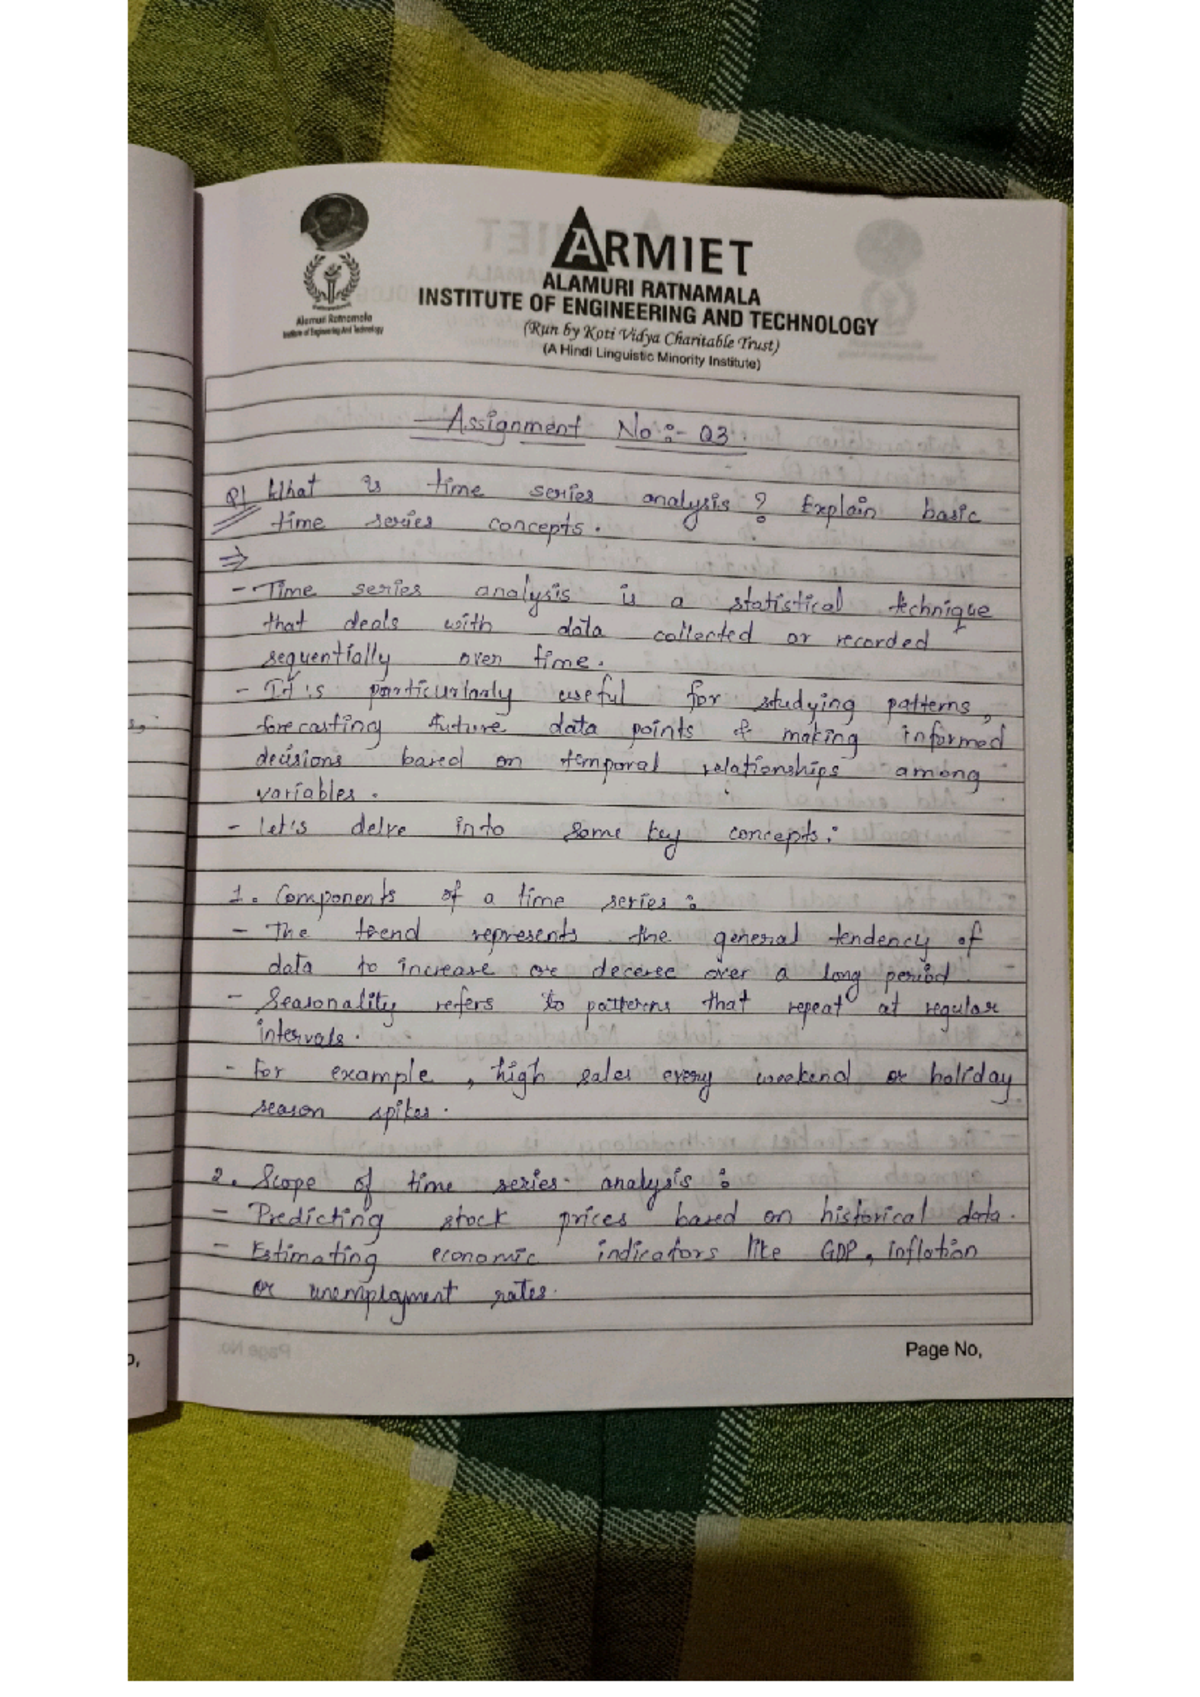 ARMIET
ALAMURI RATNAMALA
INSTITUTE OF ENGINEERING AND TECHNOLOGY
(Run by Koti Vidya Charitable Trust)
(A Hindi Linguistic Minority Institute)
Alamuri Ratnamala
Institute of Engineering And Technology
Assignment No :- 03.
Q1 What is time series analysis ? Explain basic
time series concepts.
⇒
- Time series analysis is a statistical technique
that deals with data collected or recorded
sequentially over time.
- It's particurlarly useful for studying patterns,
forecasting future data points & making informed
decisions based on temporal relationships among
variables.
- Let's delve into some key concepts:
1. Components of a time series :
- The trend represents the general tendency of
data to increase or decerese over a long period
- Seasonality refers to patterns that repeat at regular
intervals.
- For example, high sales every weekend or holiday
season spikes.
2. Scope of time series analysis :
- Predicting stock prices based on historical data.
- Estimating economic indicators like GDP, inflation
or unemployment rates.
Page No,